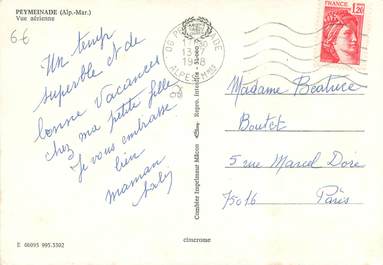 PEYMEINADE (Alp.-Mar.)
Vue aérienne
6€
Un temps
superbe et de
bonne vacances
chez ma petite fille
Je vous embrasse
bien
maman
06 PEYMEINADE
ALPES MMES
FRANCE
1,20
Combier Imprimeur Mâcon
Madame Béatrice
Boutet
5 rue Marcel Doré
75016
Paris
E 06095 995.5502
cimcrome